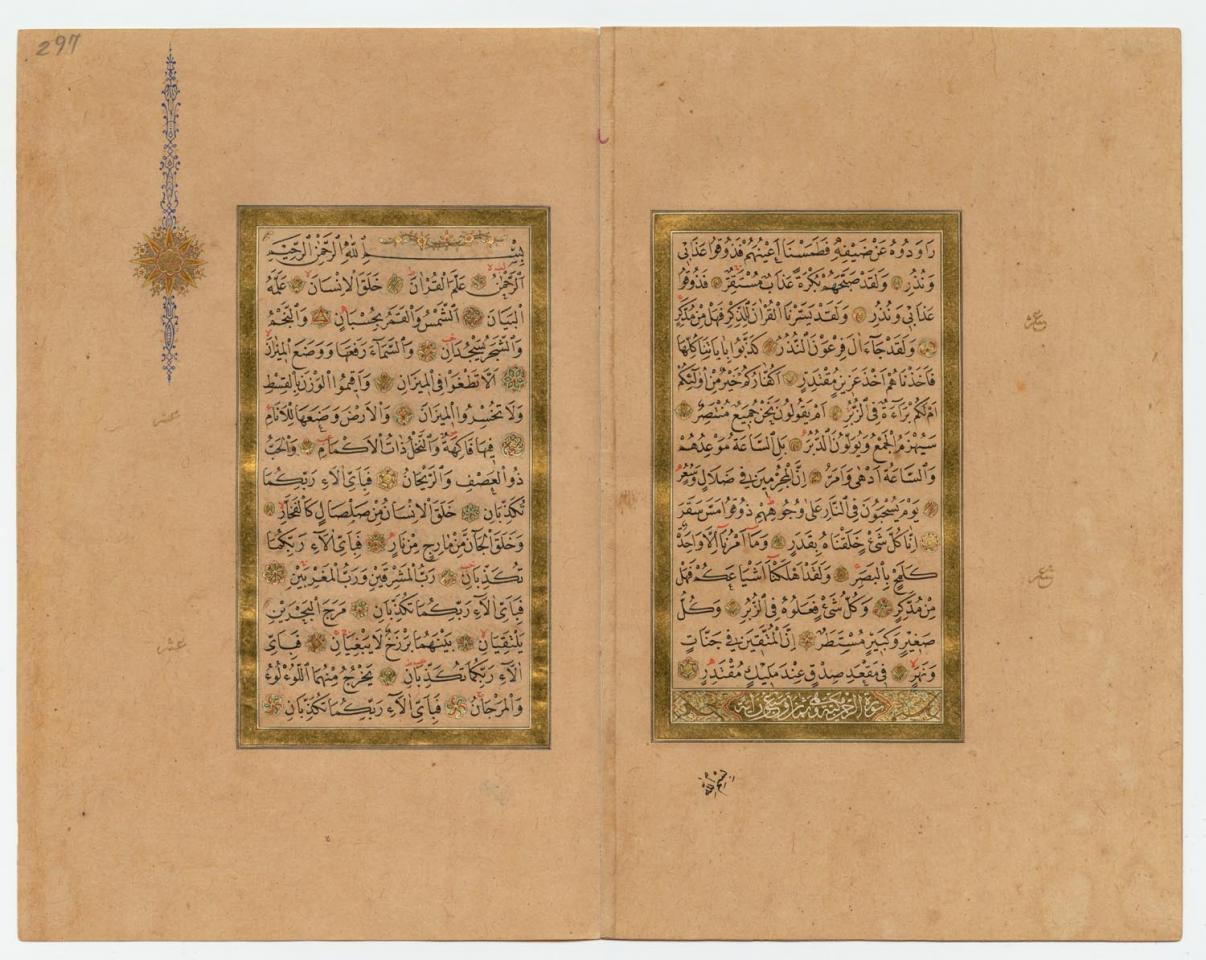 رَاوَدُوهُ عَنْ ضَيْفِهِ فَطَمَسْنَا اَعْيُنَهُمْ فَذُوقُوا عَذَابِى
وَنُذُرِ وَلَقَدْ صَبَّحَهُمْ بُكْرَةً عَذَابٌ مُسْتَقِرٌّ فَذُوقُوا
عَذَابِى وَنُذُرِ وَلَقَدْ يَسَّرْنَا الْقُرْاٰنَ لِلذِّكْرِ فَهَلْ مِنْ مُدَّكِرٍ
وَلَقَدْ جَاءَ اٰلَ فِرْعَوْنَ النُّذُرُ كَذَّبُوا بِاٰيَاتِنَا كُلِّهَا
فَاَخَذْنَاهُمْ اَخْذَ عَزِيزٍ مُقْتَدِرٍ اَكُفَّارُكُمْ خَيْرٌ مِنْ اُولٰئِكُمْ
اَمْ لَكُمْ بَرَاءَةٌ فِى الزُّبُرِ اَمْ يَقُولُونَ نَحْنُ جَمِيعٌ مُنْتَصِرٌ
سَيُهْزَمُ الْجَمْعُ وَيُوَلُّونَ الدُّبُرَ بَلِ السَّاعَةُ مَوْعِدُهُمْ
وَالسَّاعَةُ اَدْهٰى وَاَمَرُّ اِنَّ الْمُجْرِمِينَ فِى ضَلَالٍ وَسُعُرٍ
يَوْمَ يُسْحَبُونَ فِى النَّارِ عَلٰى وُجُوهِهِمْ ذُوقُوا مَسَّ سَقَرَ
اِنَّا كُلَّ شَىْءٍ خَلَقْنَاهُ بِقَدَرٍ وَمَا اَمْرُنَا اِلَّا وَاحِدَةٌ
كَلَمْحٍ بِالْبَصَرِ وَلَقَدْ اَهْلَكْنَا اَشْيَاعَكُمْ فَهَلْ
مِنْ مُدَّكِرٍ وَكُلُّ شَىْءٍ فَعَلُوهُ فِى الزُّبُرِ وَكُلُّ
صَغِيرٍ وَكَبِيرٍ مُسْتَطَرٌ اِنَّ الْمُتَّقِينَ فِى جَنَّاتٍ
وَنَهَرٍ فِى مَقْعَدِ صِدْقٍ عِنْدَ مَلِيكٍ مُقْتَدِرٍ
عشر
عشر
بسم الله
297
بِسْمِ اللّٰهِ الرَّحْمٰنِ الرَّحِيمِ
اَلرَّحْمٰنُ عَلَّمَ الْقُرْاٰنَ خَلَقَ الْاِنْسَانَ عَلَّمَهُ
الْبَيَانَ اَلشَّمْسُ وَالْقَمَرُ بِحُسْبَانٍ وَالنَّجْمُ
وَالشَّجَرُ يَسْجُدَانِ وَالسَّمَاءَ رَفَعَهَا وَوَضَعَ الْمِيزَانَ
اَلَّا تَطْغَوْا فِى الْمِيزَانِ وَاَقِيمُوا الْوَزْنَ بِالْقِسْطِ
وَلَا تُخْسِرُوا الْمِيزَانَ وَالْاَرْضَ وَضَعَهَا لِلْاَنَامِ
فِيهَا فَاكِهَةٌ وَالنَّخْلُ ذَاتُ الْاَكْمَامِ وَالْحَبُّ
ذُو الْعَصْفِ وَالرَّيْحَانُ فَبِاَىِّ اٰلَاءِ رَبِّكُمَا
تُكَذِّبَانِ خَلَقَ الْاِنْسَانَ مِنْ صَلْصَالٍ كَالْفَخَّارِ
وَخَلَقَ الْجَانَّ مِنْ مَارِجٍ مِنْ نَارٍ فَبِاَىِّ اٰلَاءِ رَبِّكُمَا
تُكَذِّبَانِ رَبُّ الْمَشْرِقَيْنِ وَرَبُّ الْمَغْرِبَيْنِ
فَبِاَىِّ اٰلَاءِ رَبِّكُمَا تُكَذِّبَانِ مَرَجَ الْبَحْرَيْنِ
يَلْتَقِيَانِ بَيْنَهُمَا بَرْزَخٌ لَا يَبْغِيَانِ فَبِاَىِّ
اٰلَاءِ رَبِّكُمَا تُكَذِّبَانِ يَخْرُجُ مِنْهُمَا اللُّؤْلُؤُ
وَالْمَرْجَانُ فَبِاَىِّ اٰلَاءِ رَبِّكُمَا تُكَذِّبَانِ
عشر
عشر